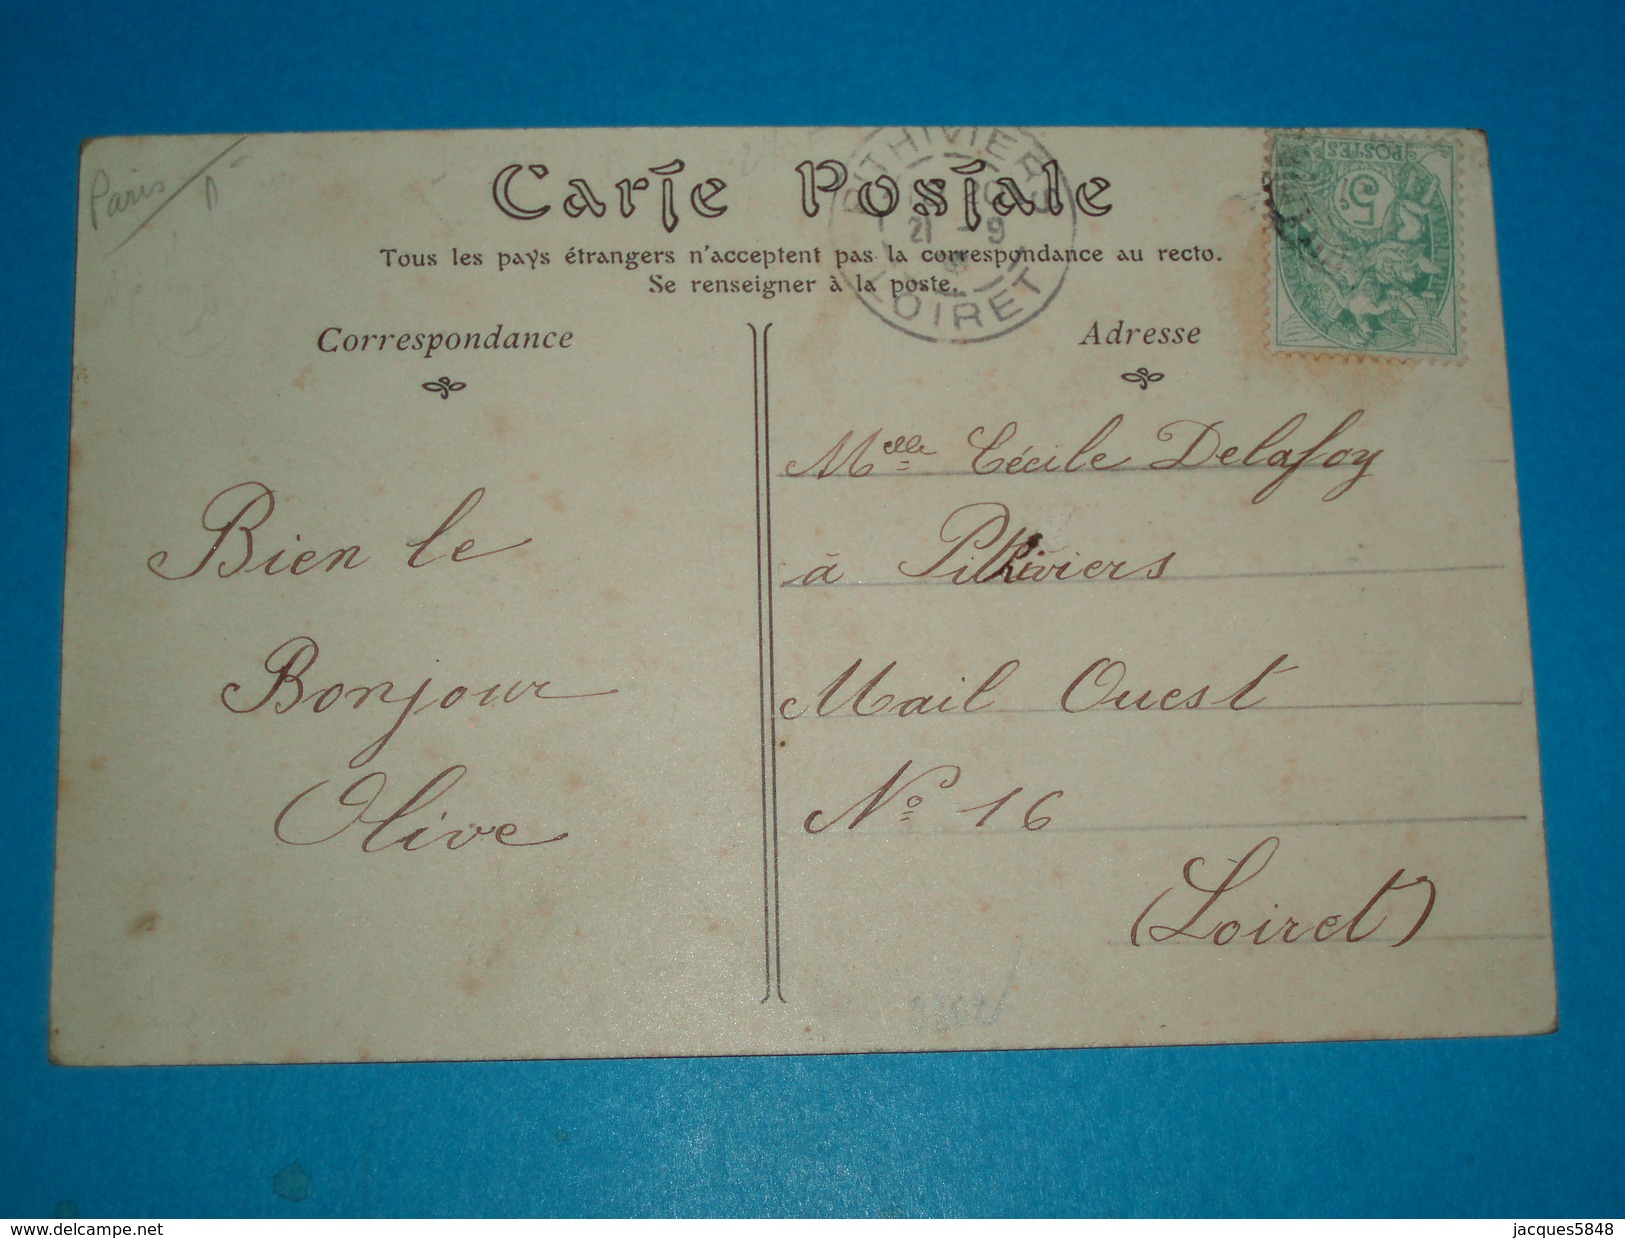 Paris
Carte Postale
Tous les pays étrangers n'acceptent pas la correspondance au recto.
Se renseigner à la poste.
PITHIVIERS
21 - 9
LOIRET
POSTES
5c
Correspondance
Adresse
Bien le
Bonjour
Olive
Melle Cécile Delafoy
à Pithiviers
Mail Ouest
No 16
(Loiret)
www.delcampe.net
jacques5848